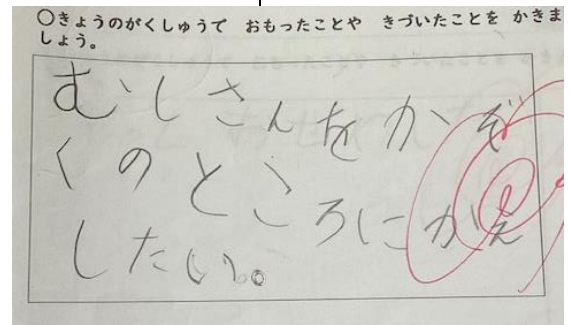 ○きょうのがくしゅうで おもったことや きづいたことを かきま
しょう。
むしさんをかぞ
くのところにかえ
したい。